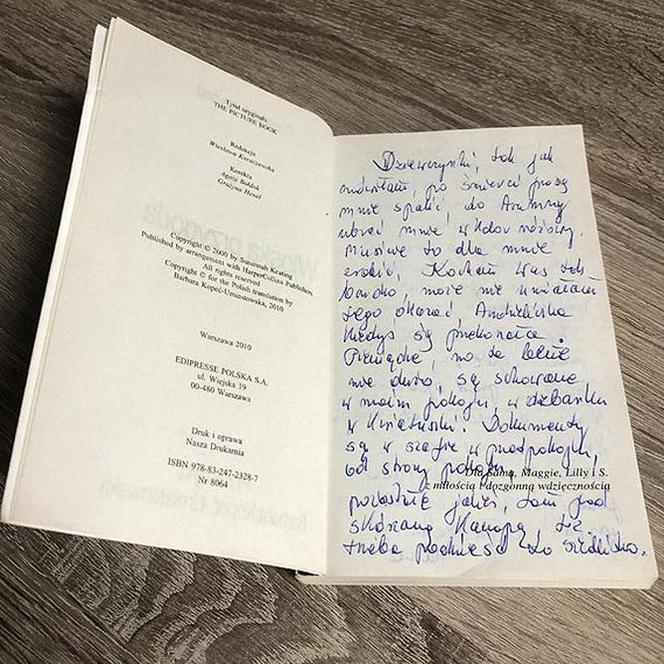 Tytuł oryginału
THE PICTURE BOOK
Redakcja
Wiesława Karaczewska
Korekta
Agata Bołdok
Grażyna Henel
Copyright © 2000 by Susannah Keating
Published by arrangement with HarperCollins Publishers.
All rights reserved
Copyright © for the Polish translation by
Barbara Kopeć-Umiastowska, 2010
Warszawa 2010
EDIPRESSE POLSKA S.A.
ul. Wiejska 19
00-480 Warszawa
Druk i oprawa
Nasza Drukarnia
ISBN 978-83-247-2328-7
Nr 8064
Dziewczynki, tak jak
mówiłam, po śmierci proszę
mnie spalić, do trumny
ubrać mnie w kolor różowy.
Musicie to dla mnie
zrobić. Kocham Was tak
bardzo, może nie umiałam
tego okazać,
kiedyś się przekonała.
Pieniądze, no te
nie dużo, są schowane
w moim pokoju, w dzbanku
w kwiatuszki. Dokumenty
są w szafie w przedpokoju,
od strony pokoju,
Dla Sama, Maggie, Lilly i S.
z miłością i dozgonną wdzięcznością
pozostałe jakieś, tam pod
skórzaną kanapą, też
trzeba podnieść to siedlisko.